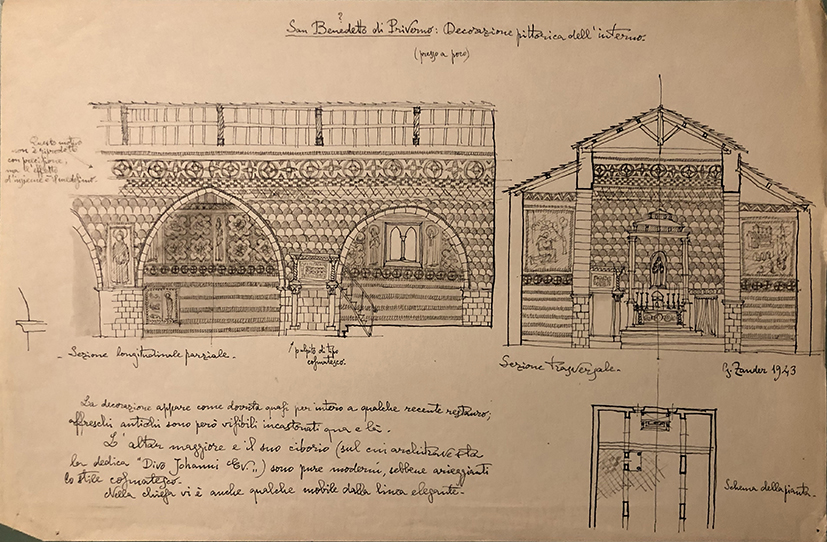 ?
San Benedetto di Priverno: Decorazione pittorica dell'interno.
(presso a poco)
Questo motivo
non è riprodotto
con precisione,
ma l'effetto
d'insieme è il medesimo.
Sezione longitudinale parziale.
pulpito di tipo
cosmatesco.
Sezione trasversale.
G. Zander 1943
La decorazione appare come dovuta quasi per intero a qualche recente restauro;
affreschi antichi sono però visibili incastonati qua e là.
L'altar maggiore e il suo ciborio (sul cui architrave sta
la dedica "Divo Johanni Ev.„) sono pure moderni, sebbene arieggianti
lo stile cosmatesco.
Nella chiesa vi è anche qualche mobile dalla linea elegante.
Schema della pianta.